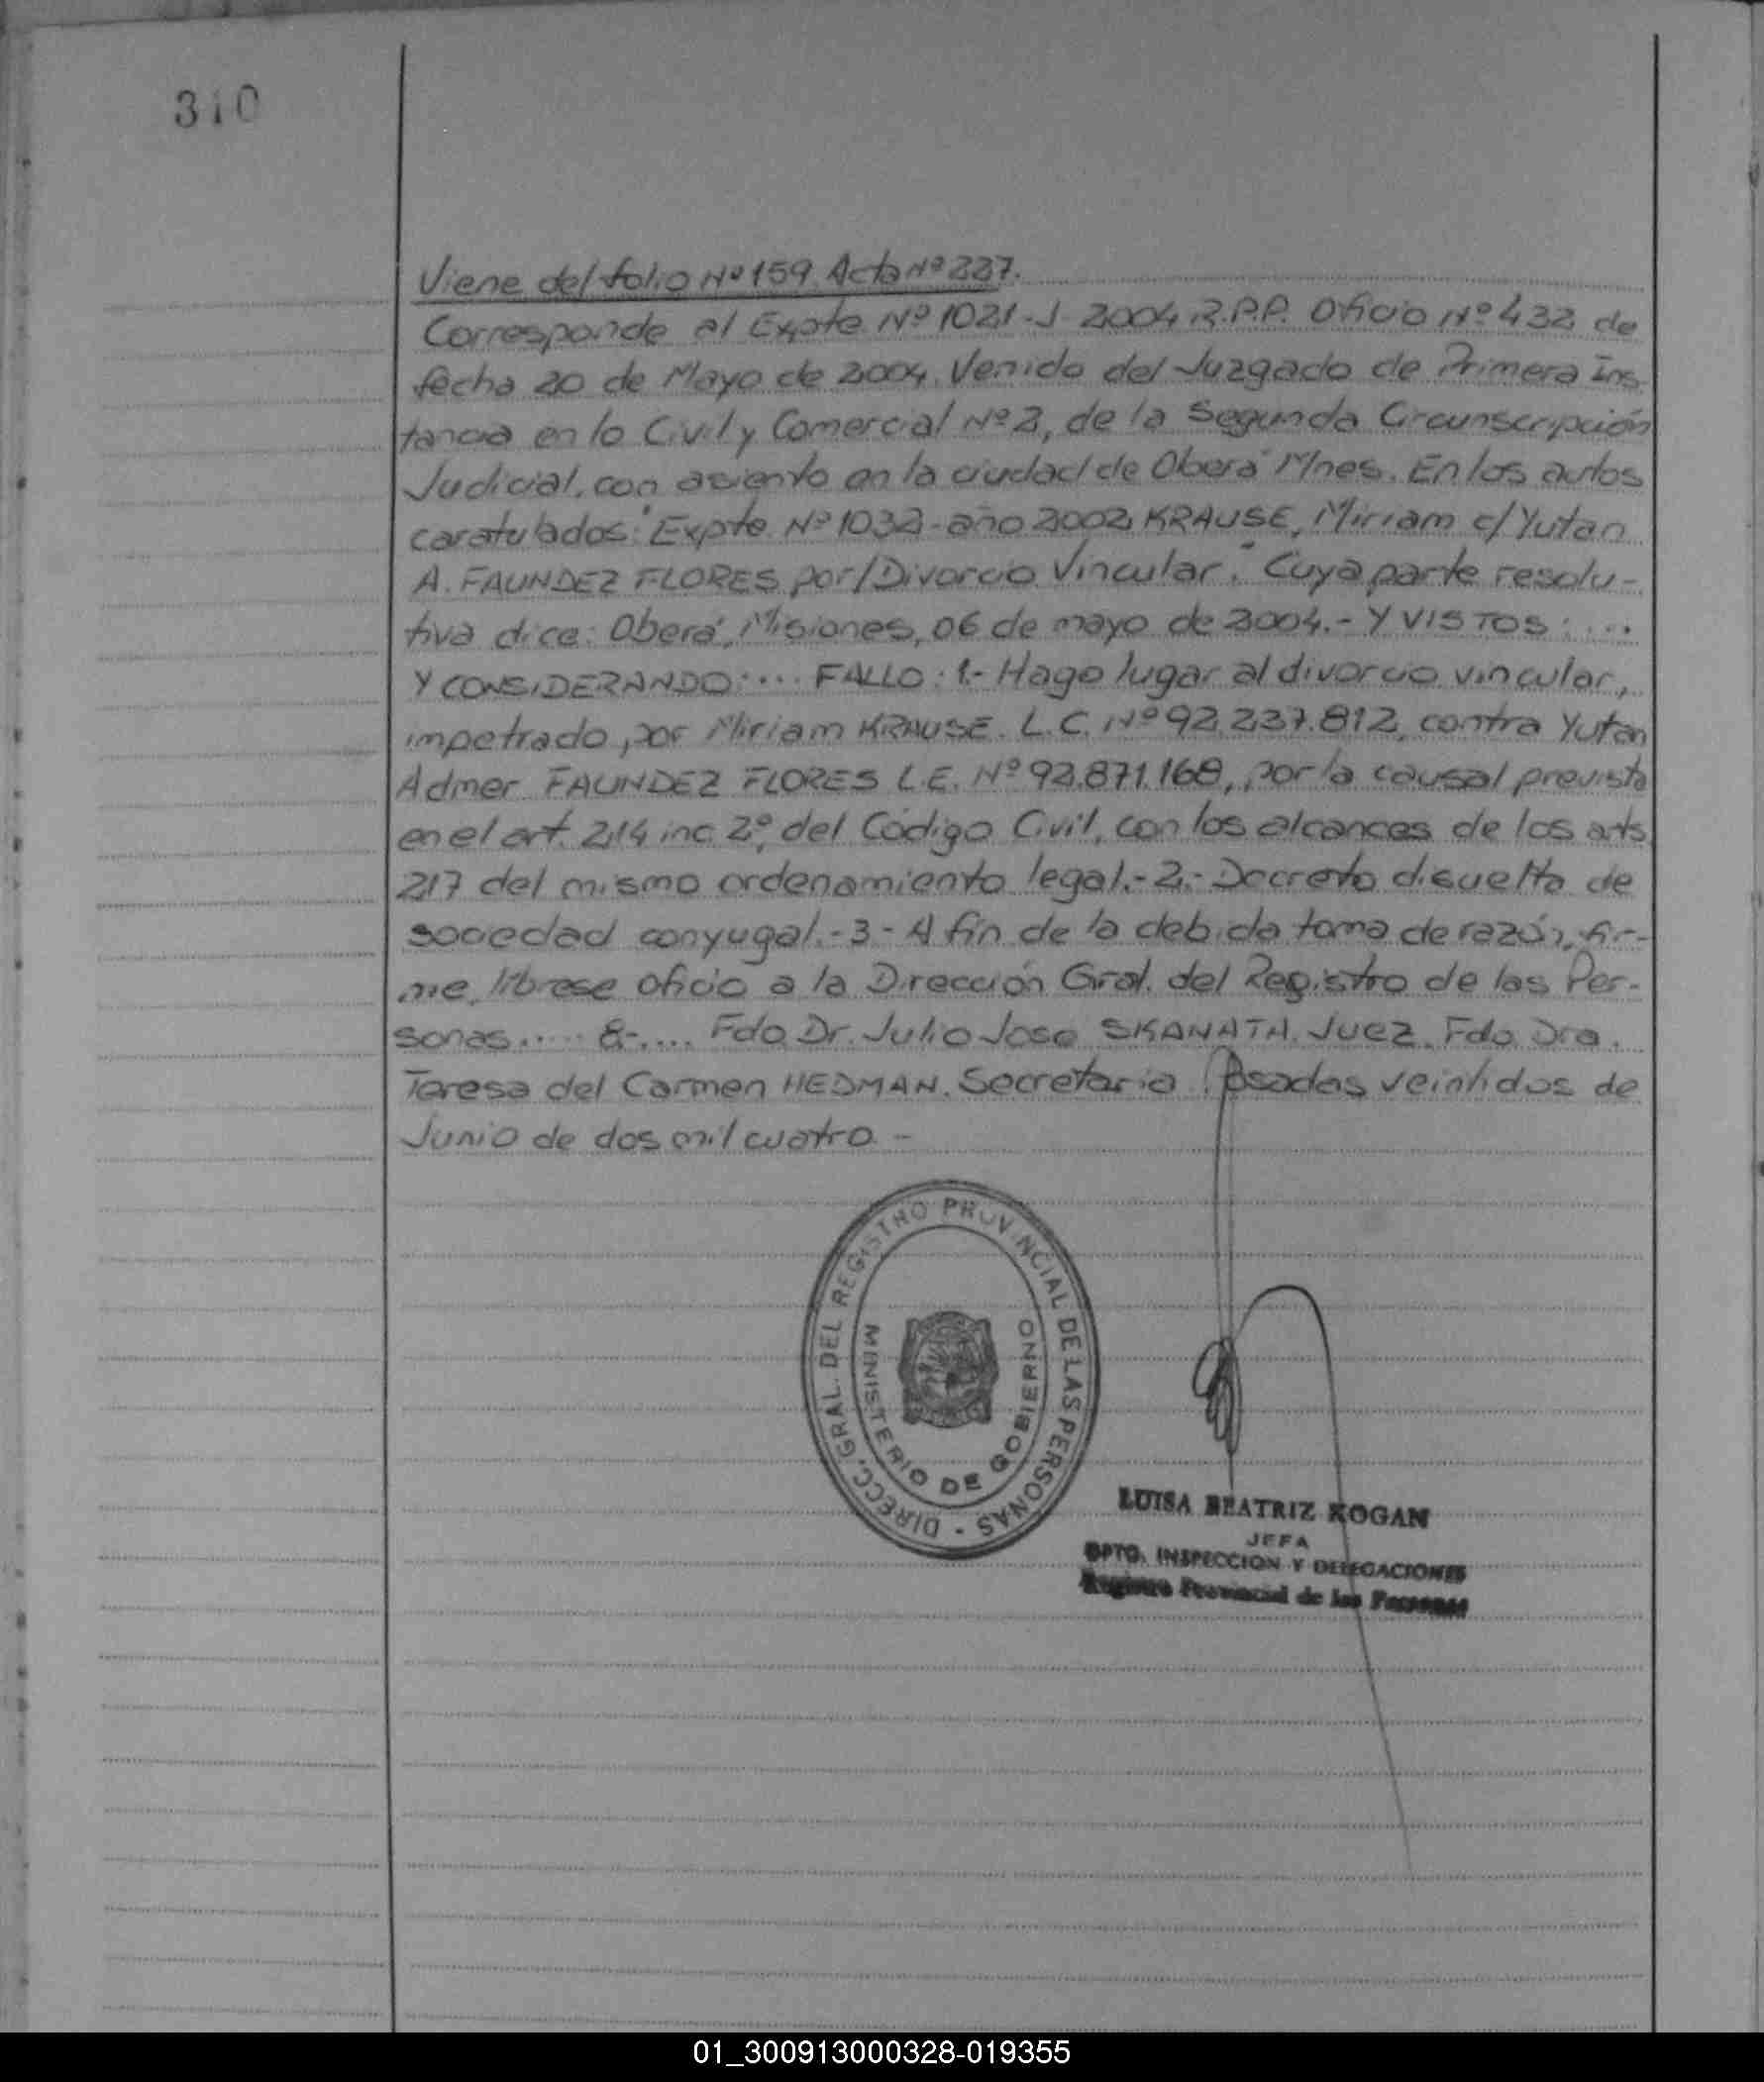 310
Viene del folio Nº 159. Acta Nº 227.
Corresponde al Expte. Nº 1021-J-2004 R.P.P. Oficio Nº 432 de
fecha 20 de Mayo de 2004. Venido del Juzgado de Primera Ins-
tancia en lo Civil y Comercial Nº 2, de la Segunda Circunscripción
Judicial, con asiento en la ciudad de Oberá Mnes. En los autos
caratulados: "Expte. Nº 1032-año 2002 KRAUSE, Miriam c/ Yutan
A. FAUNDEZ FLORES por/Divorcio Vincular." Cuya parte resolu-
tiva dice: Oberá, Misiones, 06 de mayo de 2004.- Y VISTOS: ...
Y CONSIDERANDO: ... FALLO: 1.- Hago lugar al divorcio vincular,
impetrado, por Miriam KRAUSE. L.C. Nº 92.237.812, contra Yutan
Admer FAUNDEZ FLORES L.E. Nº 92.871.168, por la causal prevista
en el art. 214 inc. 2º, del Código Civil, con los alcances de los arts.
217 del mismo ordenamiento legal.- 2.- Decreto disuelta de
sociedad conyugal.- 3 - A fin de la debida toma de razón, fir-
me, líbrese oficio a la Dirección Gral. del Registro de las Per-
sonas..... 8-.... Fdo. Dr. Julio Jose SKANATA. Juez. Fdo. Dra.
Teresa del Carmen HEDMAN. Secretaria. Posadas veintidos de
Junio de dos mil cuatro.-
DIRECC. GRAL. DEL REGISTRO PROVINCIAL DE LAS PERSONAS -
MINISTERIO DE GOBIERNO
LUISA BEATRIZ KOGAN
JEFA
DPTO. INSPECCION Y DELEGACIONES
Registro Provincial de las Personas
01_300913000328-019355